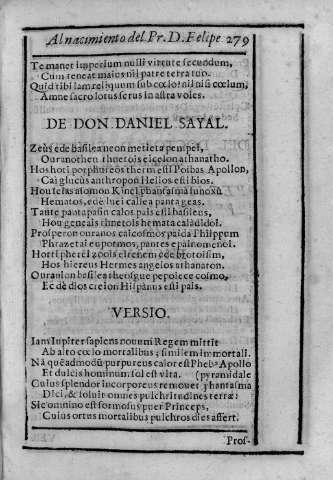 Al nacimiento del Pr. D. Felipe 279
Te manet imperium nulli virtute secundum,
Cum teneat maius nil patre terra tuo.
Quid tibi iam reliquum sub cœlo? nil nisi cœlum,
Amne sacro lotus serus in astra voles.
DE DON DANIEL SAYAL.
Zeùs ede basilea neon metieta pempei,
Ouranothen thnetois eicelon athanatho.
Hos hoti porphureos thermè esti Poibas Apollon,
Cai glucus anthropon Helios esti bios.
Hou telas asomou Kinei phantasma
Hematos, edè luei callea panta geas.
Tante pantapasin calos pais esti basileus,
Hou geneais thnetois hemata cala didoi.
Prosperon ouranos calcosmos paida Philippem
Phrazetai eupotmos, pantes epainomenoi.
Horti pherei zoois eirenem ede brotoisim,
Hos hiereus Hermes angelos athanaton.
Ouranion basilea theusgue pepoiece cosmo,
Ec dè dios creion Hispanus esti pais.
VERSIO.
Ians Iupiter sapiens novum Regem mittit
Ab alto cœlo mortalibus; similem immortali.
Nã queadmodū purpureus calor est Phebꝰ Apollo
Et dulcis hominum, sol est vita. (pyramidale
Cuius splendor incorporeus remouet phantasma
Dici, & soluit omnes pulchritudines terræ:
Sic omnino est formosus puer Princeps,
Cuius ortus mortalibus pulchros dies assert.
Pros-